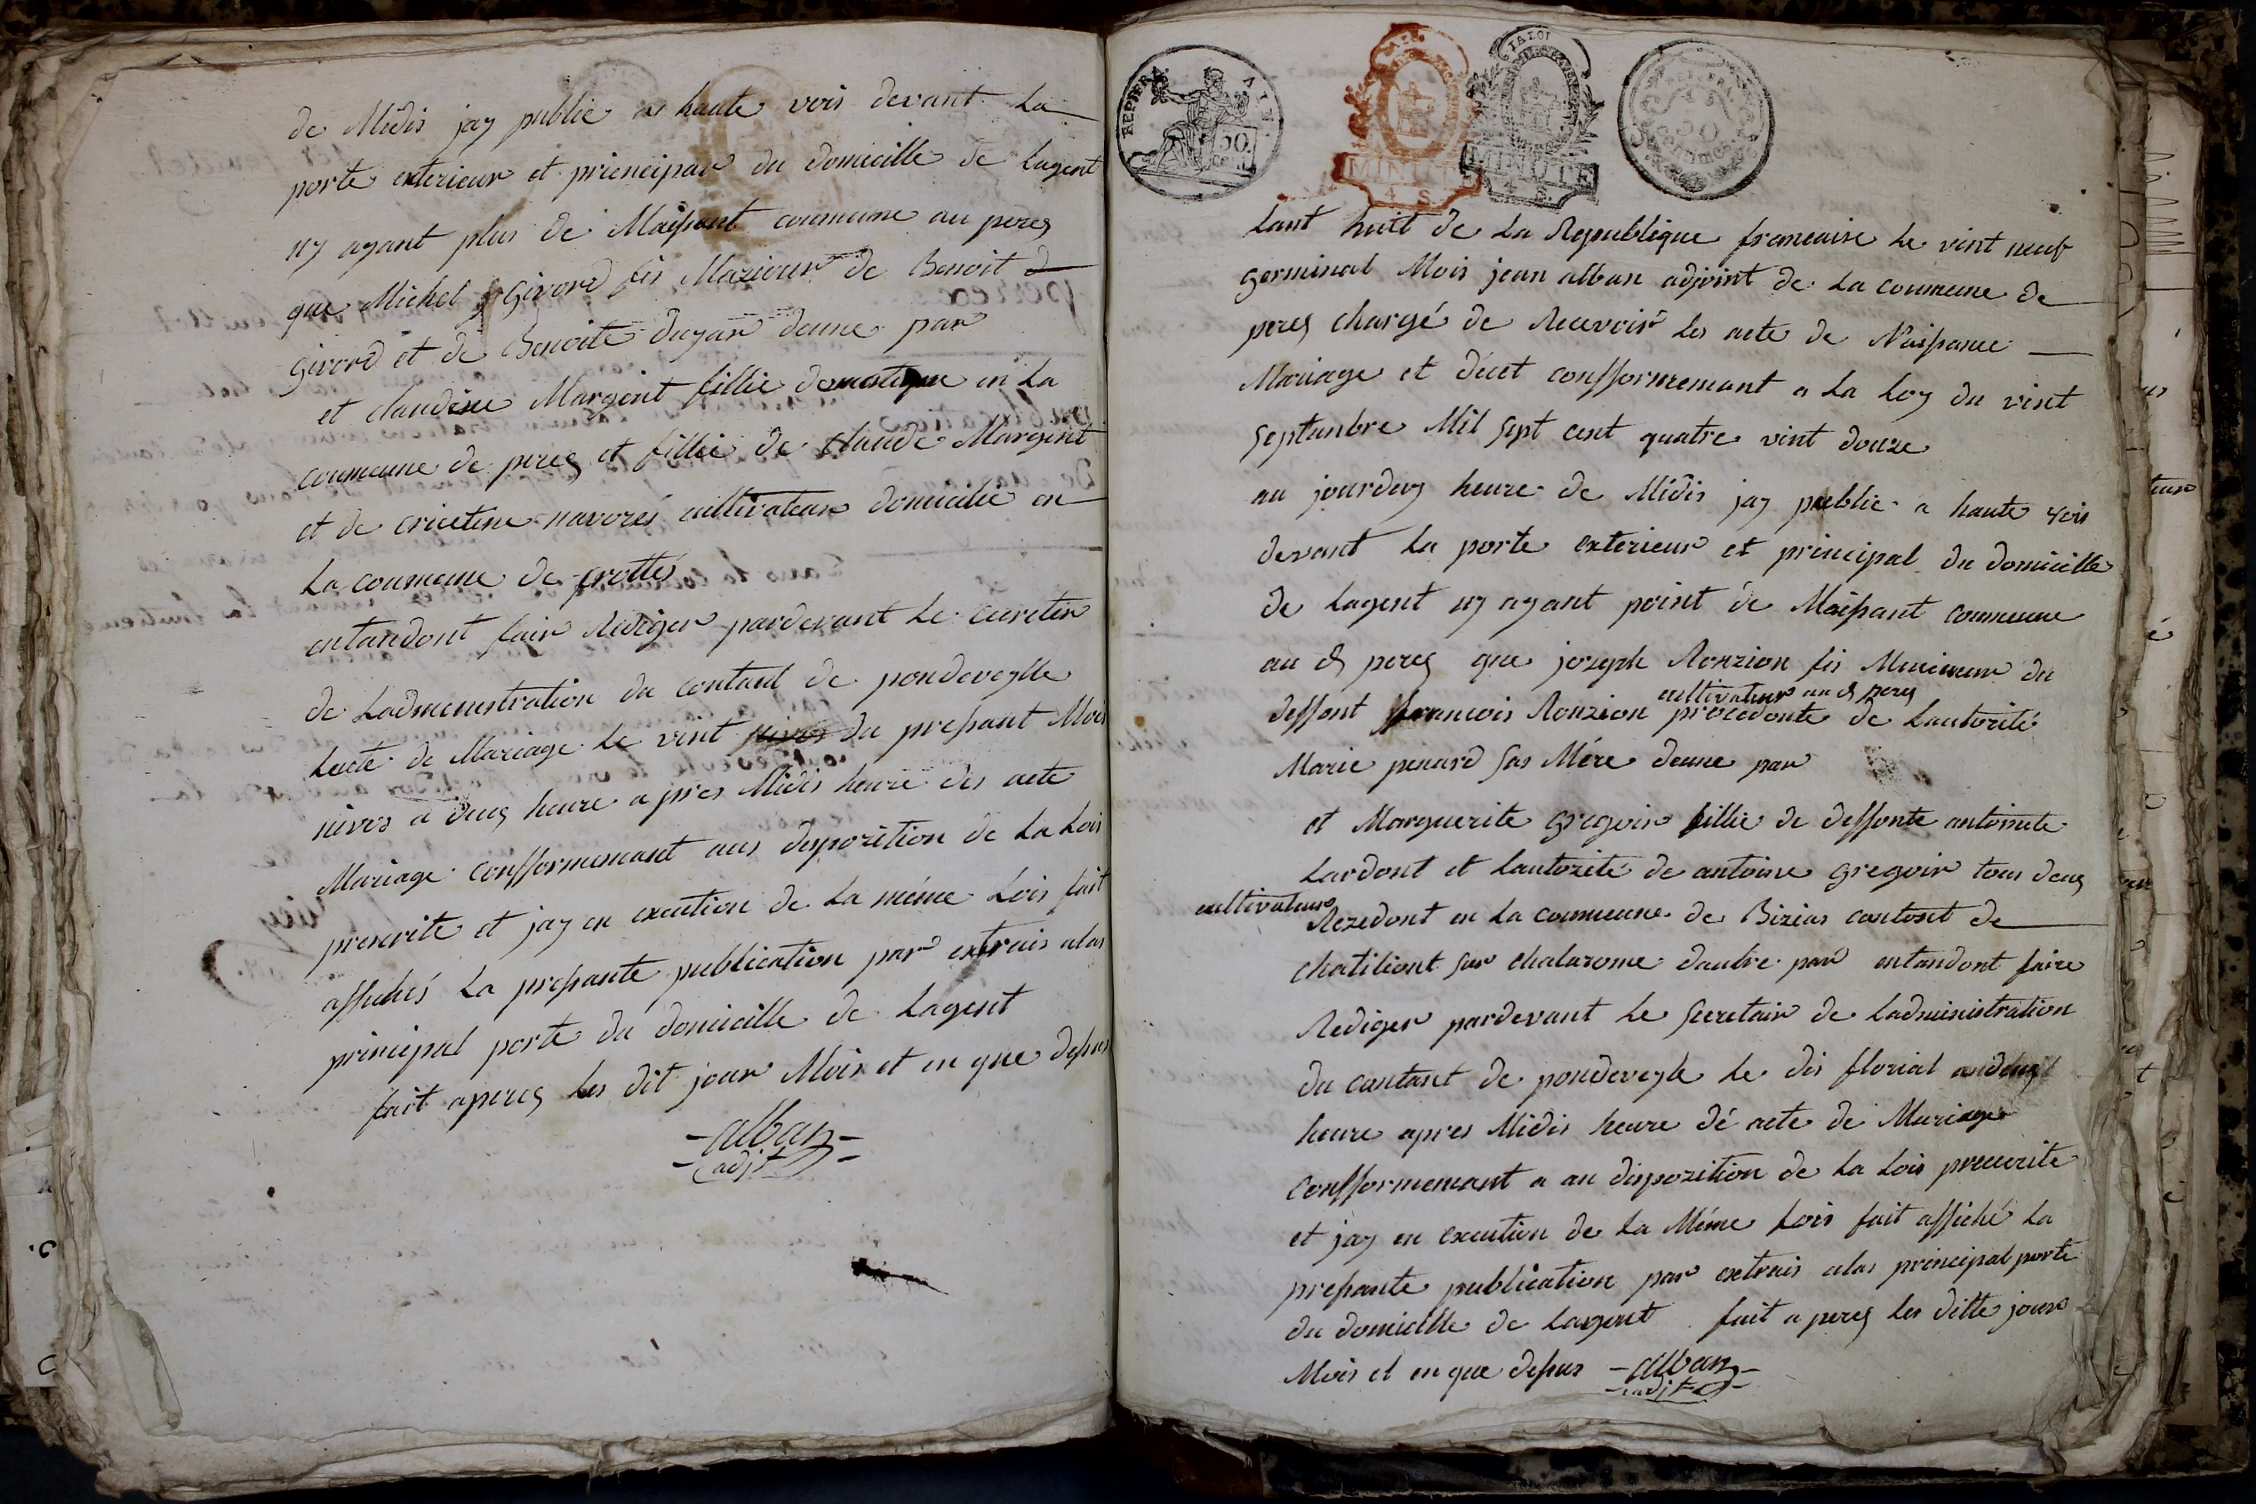 de Midis jay publie a haute vois devant La
porte exterieur et priencipar du domicille de Lagent
ny ayant plus de Maisont coumune au perex
que Michel Givord fis Mazieur de Benoit d
Givord et de Benoite dugar deune par
et claudine Margint fillie domestique en La
coumeune de perex et fillie de Claude Margint
et de cricetine navorés cultivateur domicilie en
La coumeune de crottés
entandont fair Rediger pardevant Le
de Ladmenistration du contant de pondeveylle
Lacte de Mariage Le vint du presant Mois
nivos a deux heure a pres Midis heure des acte
Mariage confformemant aus disposition de La Lois
prescrite et jay en execution de La méme Lois fait
affichés La presante publication par extrais alas
principal porte du domicille de Lagent
fait aperex Les dit jour Mois et en que desus
alban
adjt
REP. FRA.
50
cent.
MINUTE
4 S.
MINUTE
4 S.
50
centimes
Lant huit de La Republique francaise Le vint neuf
Germinal Mois jean alban adjoint de La coumeune de
perex chargé de Recevoir Les acte de Naissance
Mariage et décet confformemant a La Loy du vint
septanbre Mil sept cent quatre vint douze
au jourduy heure de Midis jay publie a haute vois
devant La porte exterieur et principal du domicille
de Lagent ny ayant point de Maisont coumeune
au d perex que joseph Ronzion fis Mineur du
cultivateur au d perex
deffont francois Ronzion procedonte de Lautorité
Marie penard sas Mére deune par
et Marguerite Gregoir fillie de deffonte antoinete
Lardont et Lautorité de antoine Gregoir tous deux
cultivateur
Rezedont en La coumeune de Bizias contont de
chatiliont sur chalarome dautre par entandont faire
Rediger pardevant Le secretair de Ladministration
du contant de pondeveyle Le dis florial
heure apres Midis heure dé acte de Mariage
confformemant a au disposition de La Lois prescrite
et jay en execution de La Méme Lois fait affiché La
presante publication par extrais alas principal porte
du domicille de Lagent fait a perex Les ditte jour
Mois et en que desus alban
adjt